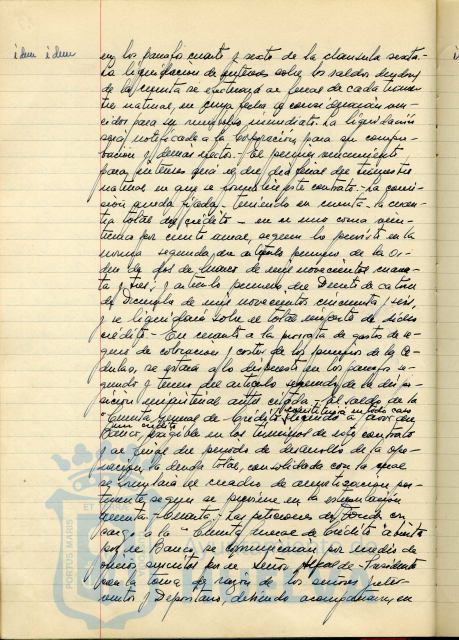 idem idem
en los párrafo cuarto y sexto de la clausula sexta.-
La liquidación de intereses sobre los saldos deudores
de la cuenta se efectuará al final de cada trimes
tre natural, en cuya fecha se considerarán ven
cidos para su reembolso inmediato. La liquidación
será notificada a la Corporación para su compro-
bación y demás efectos.- El primer vencimiento
para intereses será el del día final del trimestre
natural en que se formalice este contrato.- La comi-
sión queda fijada, teniendo en cuenta la cuan-
tia total del crédito - en el uno como
por ciento anual, segun lo previsto en la
norma segunda, del artículo primero de la Or-
den de dos de marzo de mil novecientos cuaren
ta y tres, y artículo primero del Decreto de catorce
de Diciembre de mil novecientos cincuenta y seis,
y se liquidará sobre el total importe de dicho
crédito.- En cuanto a la prorrata de gastos de se-
guro de colocación y costes de los de la Cé-
dulas, se estará a lo dispuesto en los párrafos se-
gundo y tercero del artículo segundo de la dispo-
sición ministerial antes citada.- El saldo de la
constituirá en todo caso
"Cuenta general de Crédito" a favor del
un crédito
Banco, exigible en los términos de este contrato
y al final del periodo de desarrollo de la ope-
ración, la deuda total, consolidada con la que
se formulará el cuadro de amortización per-
tinente, segun se previene en la estipulación
- Las peticiones de fondos con
cargo a la "Cuenta general de Crédito" abierta
por el Banco, se comunicarán por medio de
oficios, suscritos por el señor Alcalde-Presidente
con la toma de razón de los señores Inter-
ventor y Depositario, debiendo acompañarse en
PORTUS MARIS ET TERRA